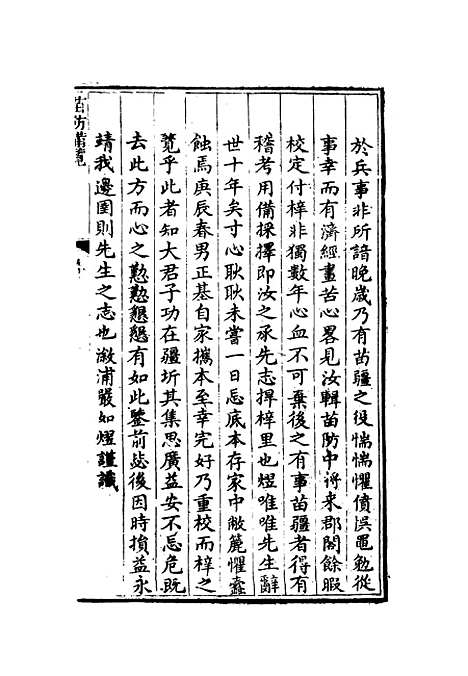 於兵事非所諳晚歲乃有苗疆之役惴惴懼僨誤黽勉從
事幸而有濟經畫苦心畧見汝輯苗防中將來郡閣餘暇
校定付梓非獨數年心血不可棄後之有事苗疆者得有
稽考用備採擇即汝之承先志捍梓里也煜唯唯先生辭
世十年矣寸心耿耿未嘗一日忘底本存家中敝簏懼蠹
蝕焉庚辰春男正基自家攜本至幸完好乃重校而梓之
覽乎此者知大君子功在疆圻其集思廣益安不忘危既
去此方而心之懃懃懇懇有如此鑒前毖後因時損益永
靖我邊圉則先生之志也溆浦嚴如熤謹識
苗防備覽